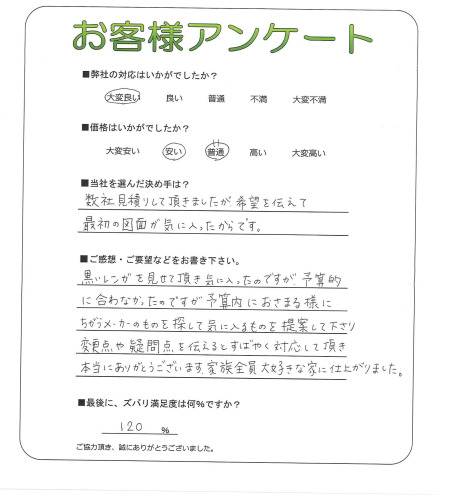 お客様アンケート
■弊社の対応はいかがでしたか？
大変良い 良い 普通 不満 大変不満
■価格はいかがでしたか？
大変安い 安い 普通 高い 大変高い
■当社を選んだ決め手は？
数社見積りして頂きましたが、希望を伝えて
最初の図面が気に入ったからです。
■ご感想・ご要望などをお書き下さい。
黒いレンガを見せて頂き気に入ったのですが、予算的
に合わなかったのですが予算内におさまる様に
ちがうメーカーのものを探して気に入るものを提案して下さり
変更点や疑問点を伝えるとすばやく対応して頂き
本当にありがとうございます。家族全員大好きな家に仕上がりました。
■最後に、ズバリ満足度は何％ですか？
120 ％
ご協力頂き、誠にありがとうございました。